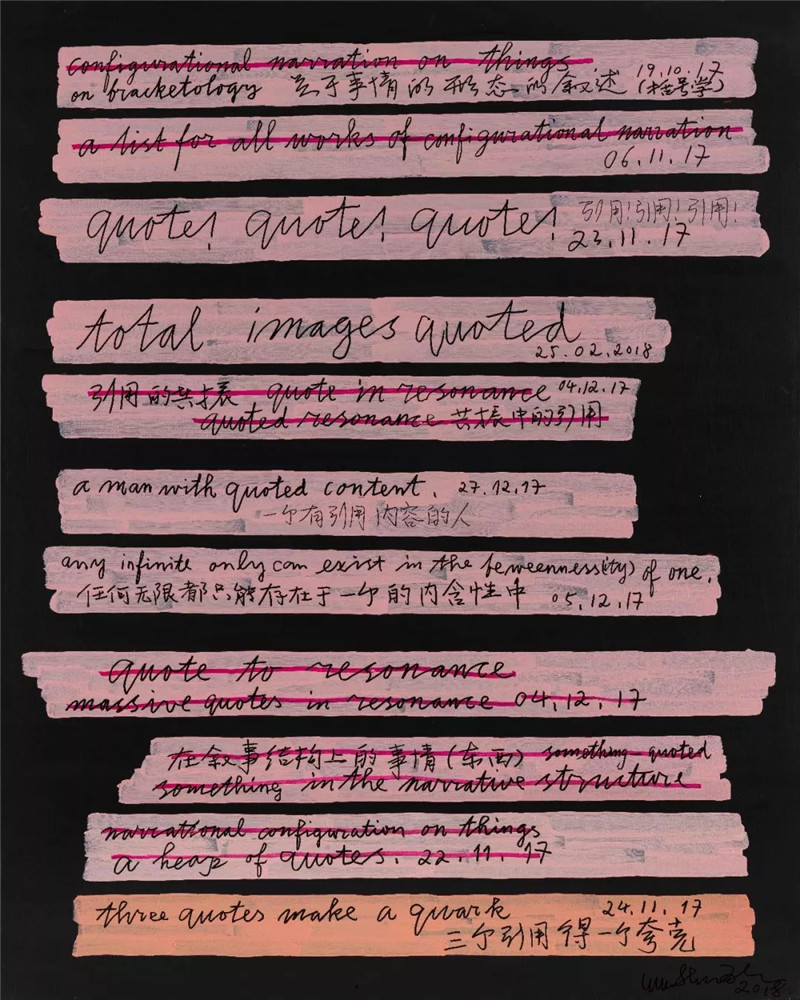 configurational narration on things
on bracketology 关于事情的形态的叙述 19.10.17 (括号学)
a list for all works of configurational narration
06.11.17
quote! quote! quote! 引用!引用!引用!
23.11.17
total images quoted
25.02.2018
引用的共振 quote in resonance 04.12.17
quoted resonance 共振中的引用
a man with quoted content. 27.12.17
一个有引用内容的人
any infinite only can exist in the beweenness(ity) of one.
任何无限都只能存在于一个的内含性中 05.12.17
quote to resonance
massive quotes in resonance 04.12.17
在叙事结构上的事情(东西) something quoted
something in the narrative structure
narrational configuration on things
a heap of quotes. 22.11.17
three quotes make a quark 24.11.17
三个引用得一个夸克
2018